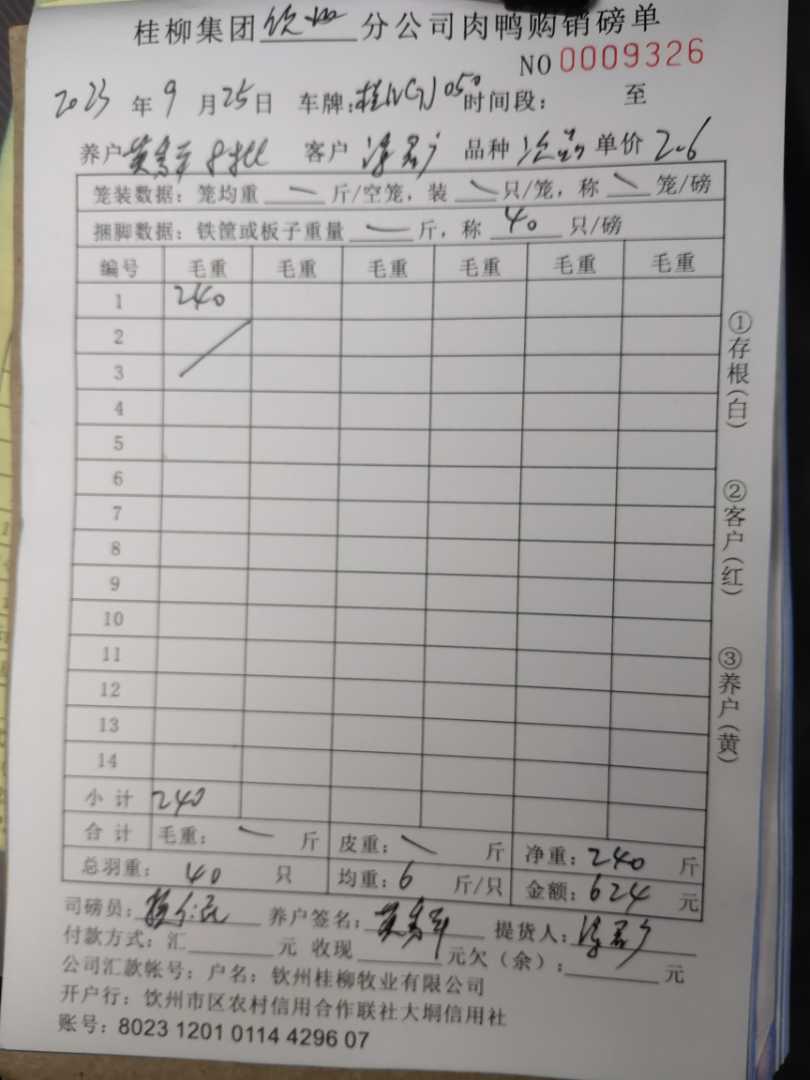 桂柳集团钦州分公司肉鸭购销磅单
NO 0009326
2023年9月25日 车牌:桂N 050 时间段: 至
养户 黄 客户 品种 单价 2.6
笼装数据:笼均重 — 斤/空笼,装 — 只/笼,称 — 笼/磅
捆脚数据:铁筐或板子重量 — 斤,称 40 只/磅
编号 毛重 毛重 毛重 毛重 毛重 毛重
1 240
2
3
4
5
6
7
8
9
10
11
12
13
14
小计 240
合计 毛重: — 斤 皮重: — 斤 净重:240 斤
总羽重: 40 只 均重:6 斤/只 金额:624 元
司磅员: 养户签名:黄 提货人:
付款方式:汇 元 收现 元欠(余): 元
公司汇款帐号:户名:钦州桂柳牧业有限公司
开户行:钦州市区农村信用合作联社大垌信用社
账号:8023 1201 0114 4296 07
①存根(白)
②客户(红)
③养户(黄)